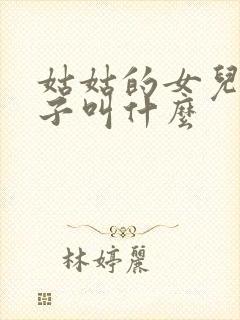 姑姑的女兒
子叫什麼
林婷麗